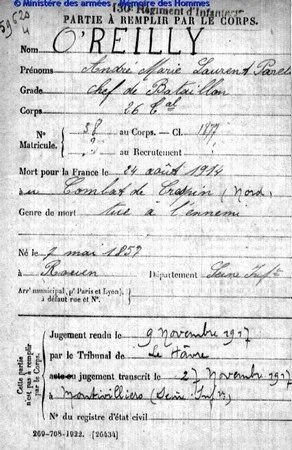 © Ministère des armées - Mémoire des Hommes
130e Régiment d'Infanterie
PARTIE À REMPLIR PAR LE CORPS.
Nom O'REILLY
Prénoms André Marie Laurent
Grade Chef de Bataillon
Corps 26 Cal
N° 38 au Corps. — Cl. 1877
Matricule. au Recrutement
Mort pour la France le 24 août 1914
au Combat de Crespin (Nord)
Genre de mort tué à l'ennemi
Né le 2 mai 1857
à Rouen Département Seine Infre
Arrt municipal (pr Paris et Lyon),
à défaut rue et N°.
Cette partie
n'est pas à remplir
par le Corps.
Jugement rendu le 9 Novembre 1917
par le Tribunal de Le Hâvre
acte ou jugement transcrit le 27 Novembre 1917
à Montivilliers (Seine Infre)
N° du registre d'état civil
269-708-1922. [26434]